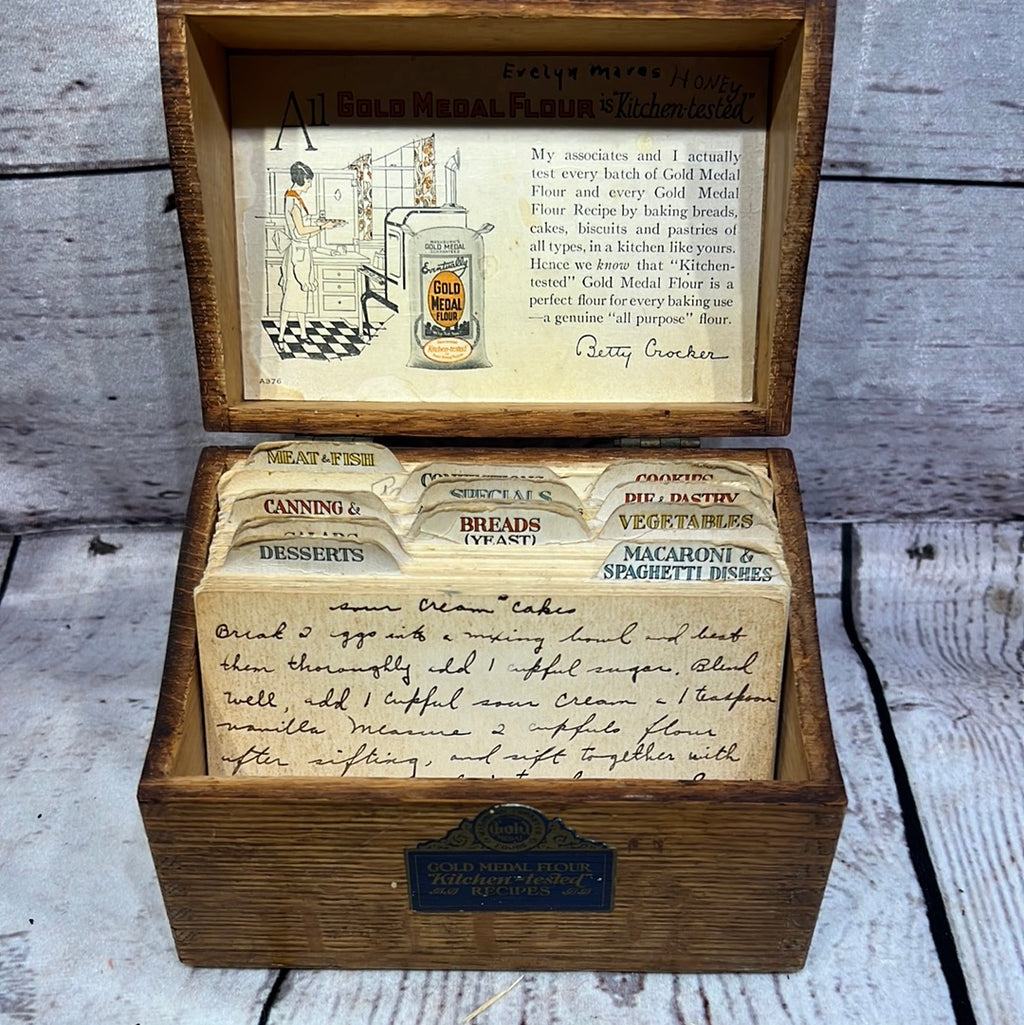 Evelyn Maras HONEY
All GOLD MEDAL FLOUR is "Kitchen-tested"
My associates and I actually
test every batch of Gold Medal
Flour and every Gold Medal
Flour Recipe by baking breads,
cakes, biscuits and pastries of
all types, in a kitchen like yours.
Hence we know that "Kitchen-
tested" Gold Medal Flour is a
perfect flour for every baking use
—a genuine "all purpose" flour.
Betty Crocker
GOLD MEDAL
Eventually
GOLD
MEDAL
FLOUR
Kitchen-tested
A976
MEAT & FISH
COOKIES
SPECIALS
PIE & PASTRY
CANNING &
BREADS
(YEAST)
VEGETABLES
SALADS
DESSERTS
MACARONI &
SPAGHETTI DISHES
sour cream cakes
Break 2 eggs into a mixing bowl and beat
them thoroughly add 1 cupful sugar. Blend
well, add 1 cupful sour cream & 1 teaspoon
vanilla Measure 2 cupfuls flour
after sifting, and sift together with
Gold
GOLD MEDAL FLOUR
"Kitchen-tested"
RECIPES